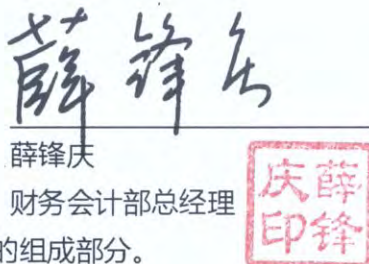 薛锋庆
薛锋庆
财务会计部总经理
的组成部分。
薛锋
庆印